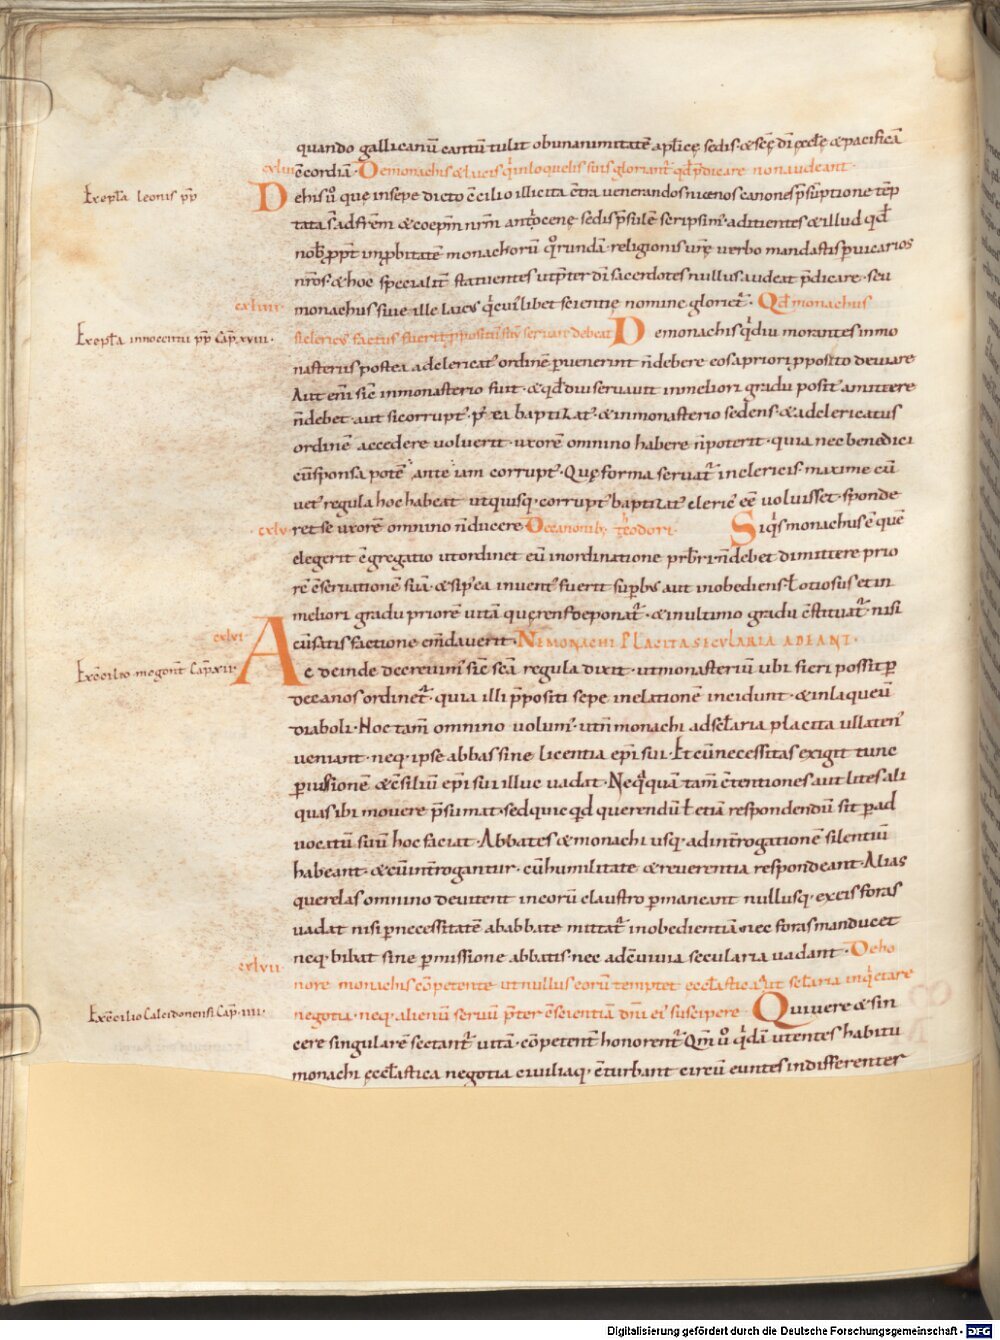 quando gallicanū cantū tulit ob unanimitatē apl̄icę sedis & scę̄ dī ęccl̄ę & pacificā
cxliii c̄cordiā · De monachis & laicis q̇ in loquelis suis gloriant̄ qđ p̄dicare non audeant ·
Ex epl̄a leonis pp̄
De his ů que in sepe dicto c̄cilio illicita c̄tra venerandos nicenos canones p̄sūptione tēp
tata s̄ ad frēm & coep̄m nr̄m antiocenę sedis p̄sulē scripsim̄ adicientes & illud qđ
nob̄ ꝓpt̄ inꝓbitatē monachorū quorundā religionis vr̄ę verbo mandastis ꝑ vicarios
nr̄os · & hoc specialit̄ statuentes ut p̄ter dn̄i sacerdotes nullus audeat p̄dicare · seu
cxliiii · monachus sive ille laicus q̇ cuilibet scientię nomine gloriet̄ · Qđ monachus
Ex epl̄a innocentii pp̄ Cap̄ xviii ·
si clericus factus fuerit ꝓpositū suū servare debeat De monachis q̇ diu morantes in mo
nasteriis postea ad clericat ordinē ꝑvenerint n̄ debere eos a priori ꝓposito deviare
Aut enī sic̄ in monasterio fuit · & qđ diu servavit in meliori gradu posit amittere
n̄ debet · aut si corrupt · p̄ ea baptizat · & in monasterio sedens · & ad clericatus
ordinē accedere voluerit · uxorē omnino habere n̄ poterit · quia nec benedici
cū sponsa potē ante iam corrupt · Quę forma servat̄ in clericis · maxime cū
vet regula hoc habeat ut quisq · corrupt baptizat cleric eē voluisset · sponde
cxlv · ret se uxorē omnino n̄ ducere · De canonibȝ theodori · Siq̇s monachus ē quē
elegerit c̄gregatio ut ordinet eū in ordinatione prb̄ri n̄ debet dimittere prio
rē c̄servationē suā · & si p̄ ea invent fuerit suꝑbus aut inobediens ł otiosus et in
meliori gradu priorē vitā quęrens deponat̄ · & in ultimo gradu c̄stituat̄ nisi
cxlvi cū satisfactione em̄daverit · NE MONACHI PLACITA SECULARIA ADEANT ·
Ex c̄cilio megont̄ Cap̄ xii ·
Ac deinde decrevim̄ sic̄ scā regula dixit · ut monasteriū ubi fieri possit ꝑ
decanos ordinet̄ · quia illi p̄positi sepe in elationē incidunt · & in laqueū
diaboli · Hoc tam̄ omnino volum̄ · ut n̄ monachi ad scl̄aria placita ullaten̄
veniant · neq · ipse abbas sine licentia ep̄i sui · Et cū necessitas exigit tunc
ꝑ iussionē & c̄siliū ep̄i sui illuc vadat · Neq̇quā tam̄ c̄tentiones aut lites ali
quas ibi movere p̄sumat · sed quicqđ querendū ł etiā respondendū sit ꝑ ad
vocatū suū hoc faciat · Abbates & monachi usq · ad int̄rogationē silentiū
habeant · & cū int̄rogantur · cū humilitate & reverentia respondeant · Alias
querelas omnino devitent in eorū claustro ꝑmaneant nullusq · ex eis foras
vadat nisi ꝑ necessitatē ab abbate mittat̄ in obedientiā · nec foras manducet
neq · bibat sine ꝑmissione abbatis · nec ad c̄vivia secularia vadant · De ho
cxlvii · nore monachis c̄petente ut nullus eorū temptet ęccl̄astica aut scl̄aria inq̇etare
negotia · neq · alienū servū p̄ter c̄scientiā dn̄i ei suscipere · Qui vere & sin
Ex c̄cilio Calcidonensi Cap̄ iiii ·
cere singularē sectant̄ vitā · c̄petent̄ honorent̄ Qm̄ ů q̇dā utentes habitu
monachi ęccl̄astica negotia civiliaq · c̄turbant circū euntes indifferenter
Digitalisierung gefördert durch die Deutsche Forschungsgemeinschaft - DFG